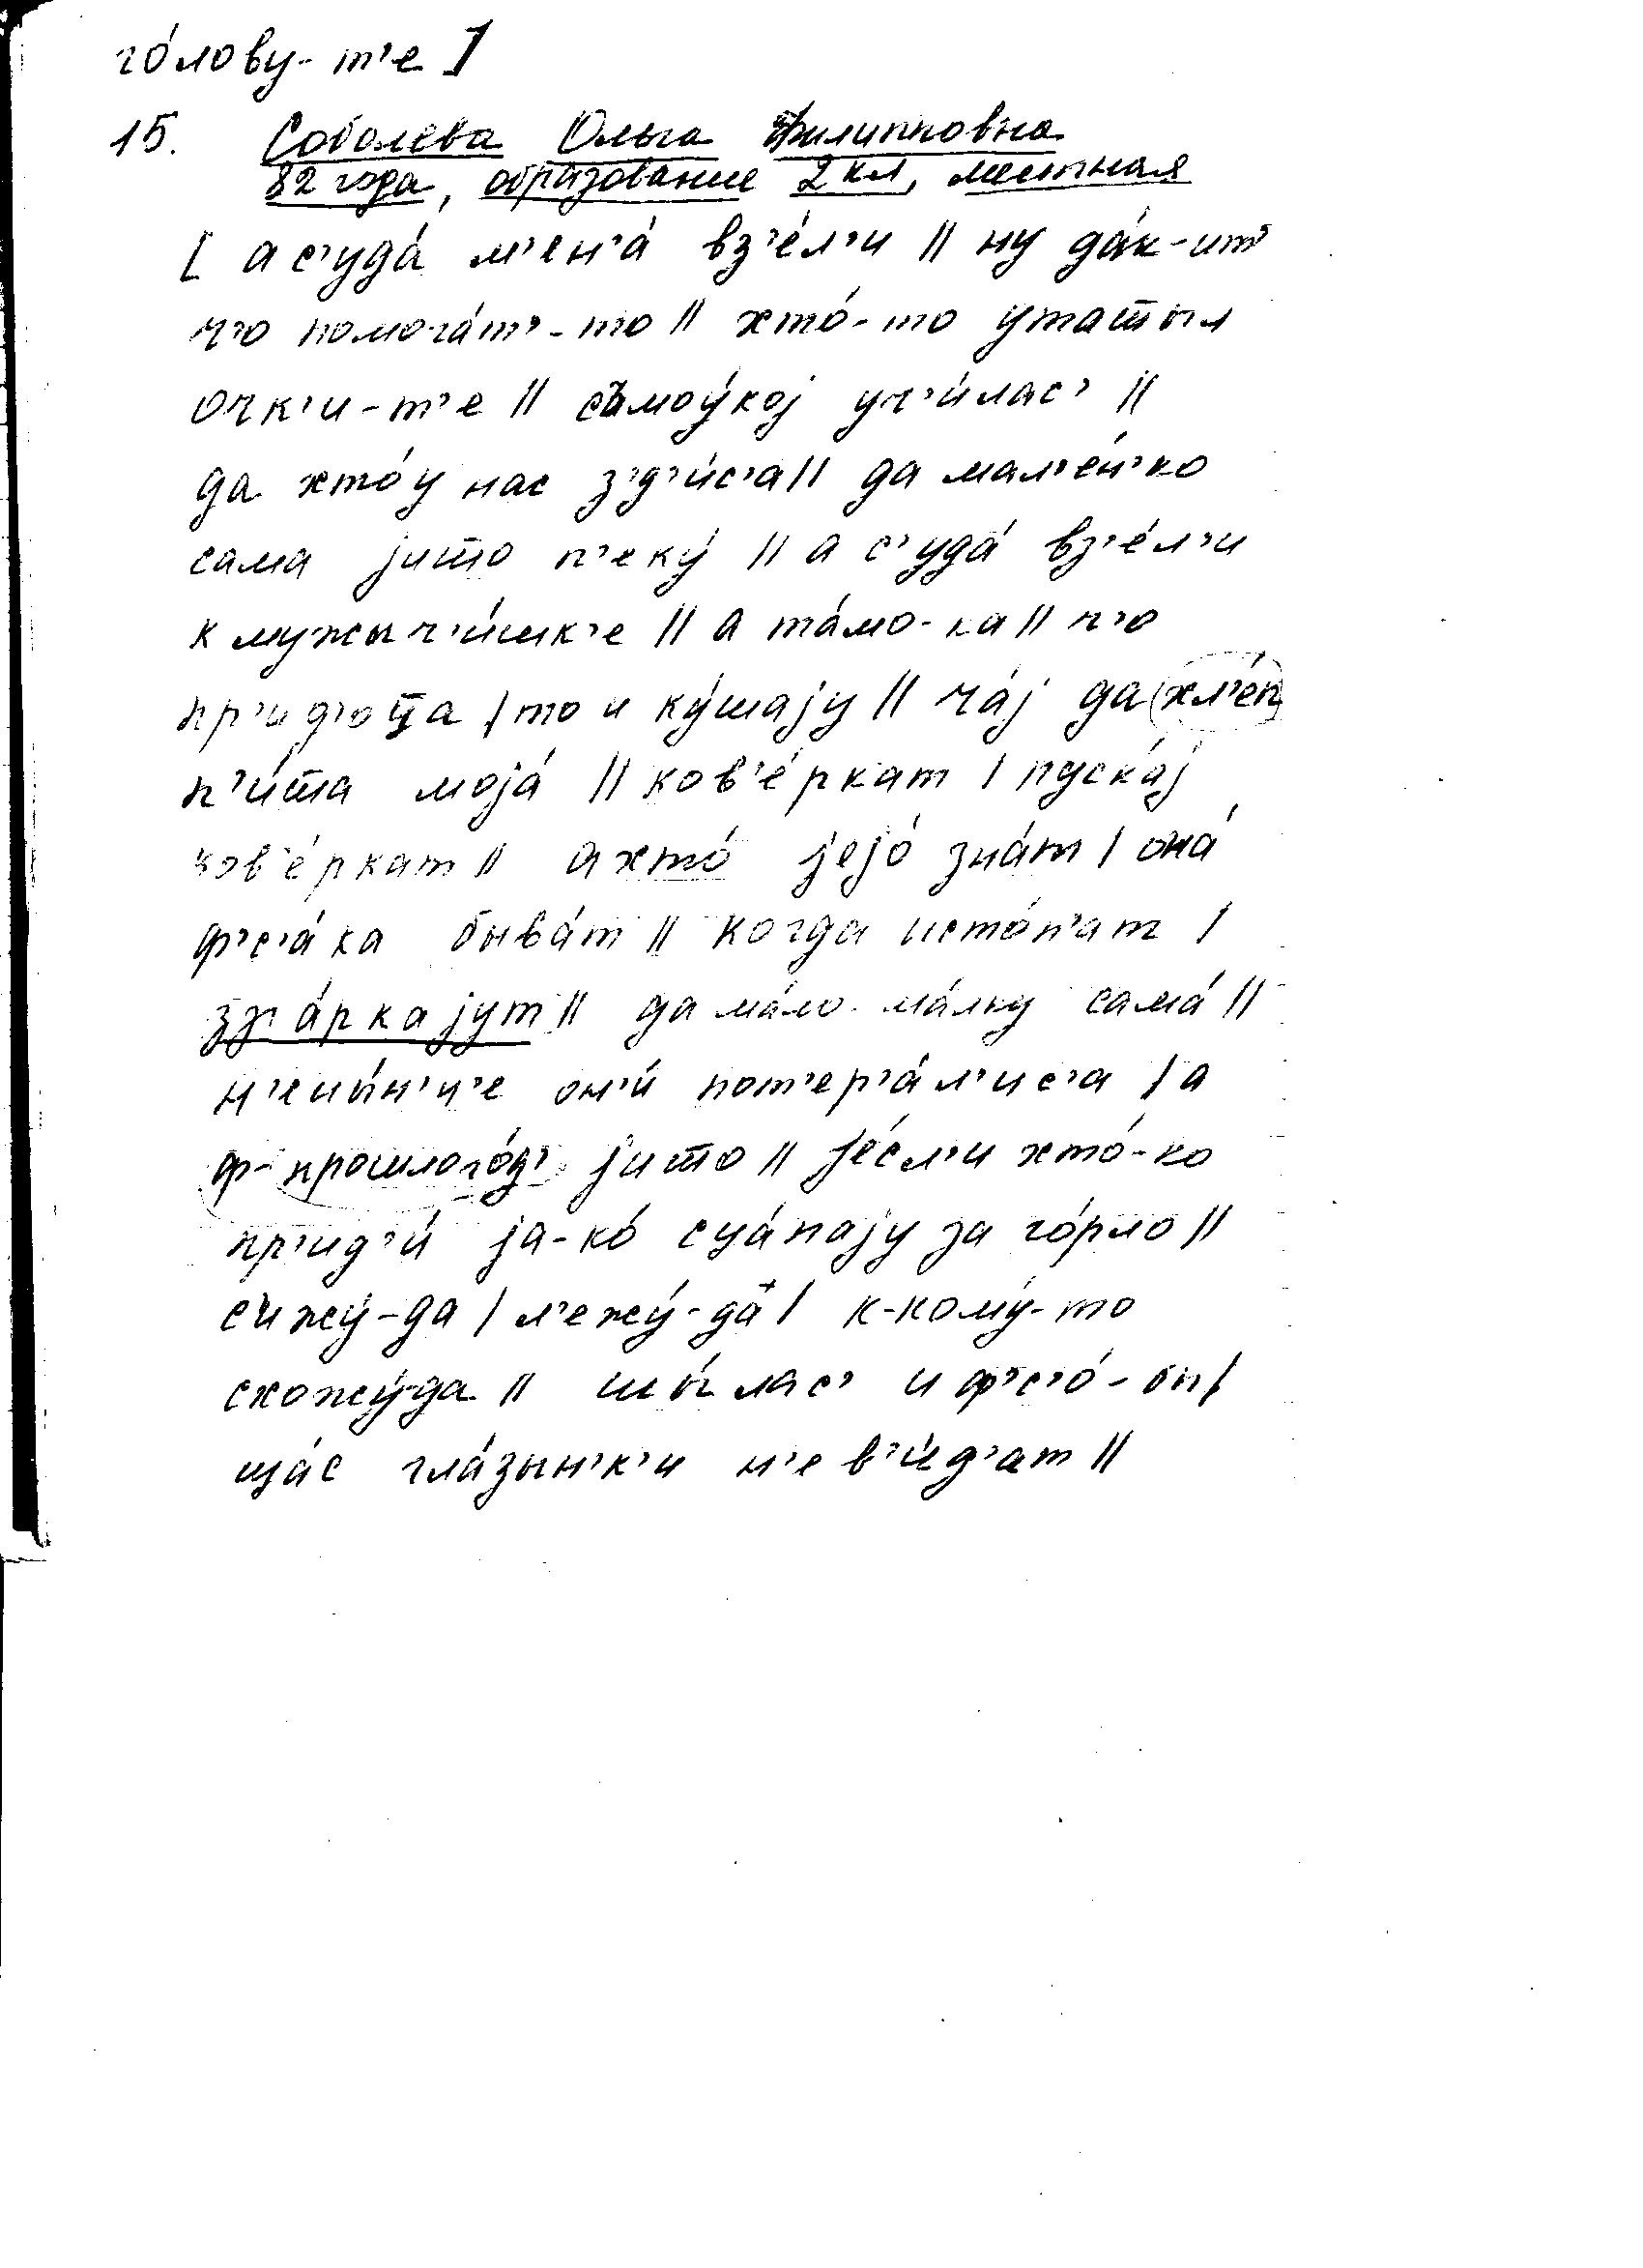 го́лову- т'е ]
15. Соболева Ольга Филипповна
82 года, образование 2 кл, местная
[ а с'уда́ м'ен'а́ вз'е́л'и || ну да́к-ит'
ч'о помога́т'-то || хто́-то утат̅ыл
очк'и-т'е || съмоу́кој уч'и́лас' ||
да хто́ у нас з'д'и́с'а || да мал'е́н'ко
сама јит̅о п'еку́ || а с'уда́ вз'е́л'и
к мужыч'и́шк'е || а та́мо-ка || ч'о
пр'ид'о̄ц̅а | то и ку́шају || ча́ј да хл'е́п
п'и́т̅а моја́ || ков'е́ркат | пуска́ј
ков'е́ркат || а хто́ јејо́ зна́т | она́
ф'с'а́ка быва́т || когда исто́п'ат |
зжа́ркајут || да ма́ло-ма́лку сама́ ||
н'еиы́н'ч'е он'и́ пот'ер'а́л'ис'а | а
ф- прошлого́д' јит̅о || је́сл'и хто́-ко
пр'ид'и́ ја-ко́ сца́пају за го́рло ||
сижу́-да | л'ежу́-да | к-кому́-то
схожу́да || шы́лас' и ф'с'о́-бы |
ща́с гла́зын'к'и н'е в'и́д'ат ||